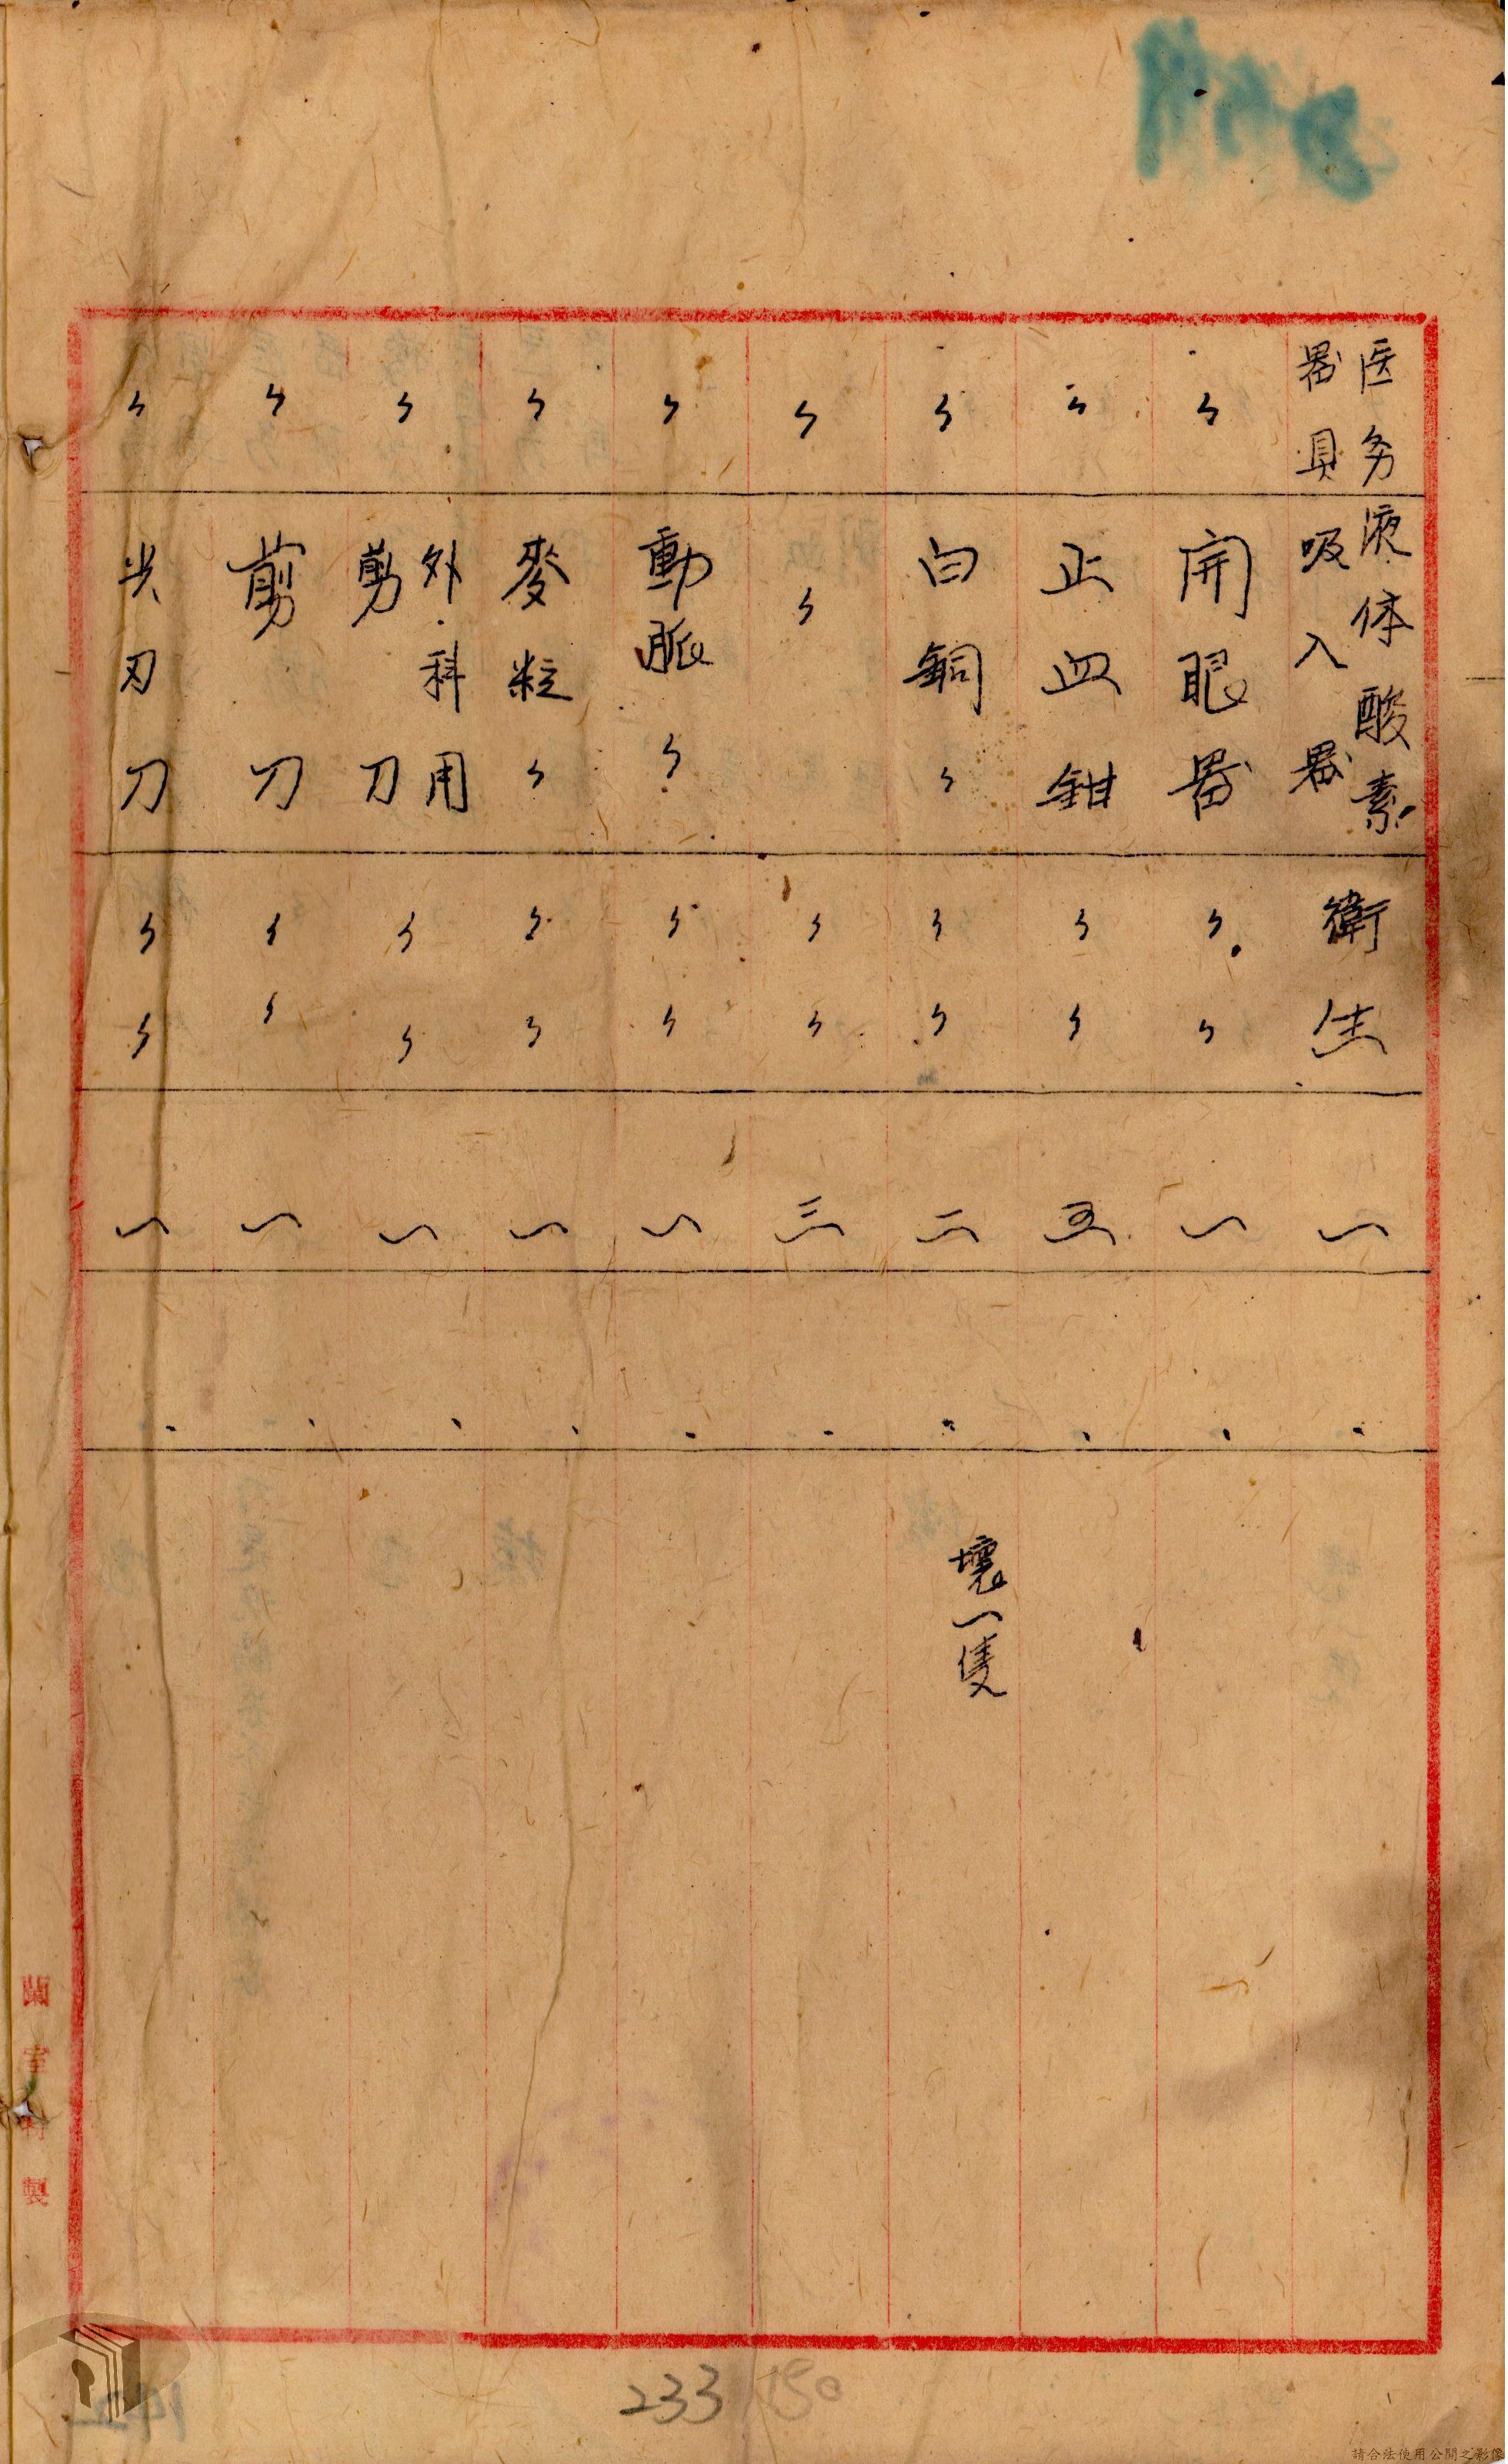 医务器具 液体酸素吸入器 衛生 一 .
〃 開眼器 〃〃 一 .
〃 止血鉗 〃〃 五 .
〃 白銅〃 〃〃 二 . 壞一隻
〃 〃 〃〃 三 .
〃 動脈〃 〃〃 一 .
〃 麥粒〃 〃〃 一 .
〃 外科用剪刀 〃〃 一 .
〃 剪刀 〃〃 一 .
〃 尖刃刀 〃〃 一 .
233
150
請合法使用公開之影像